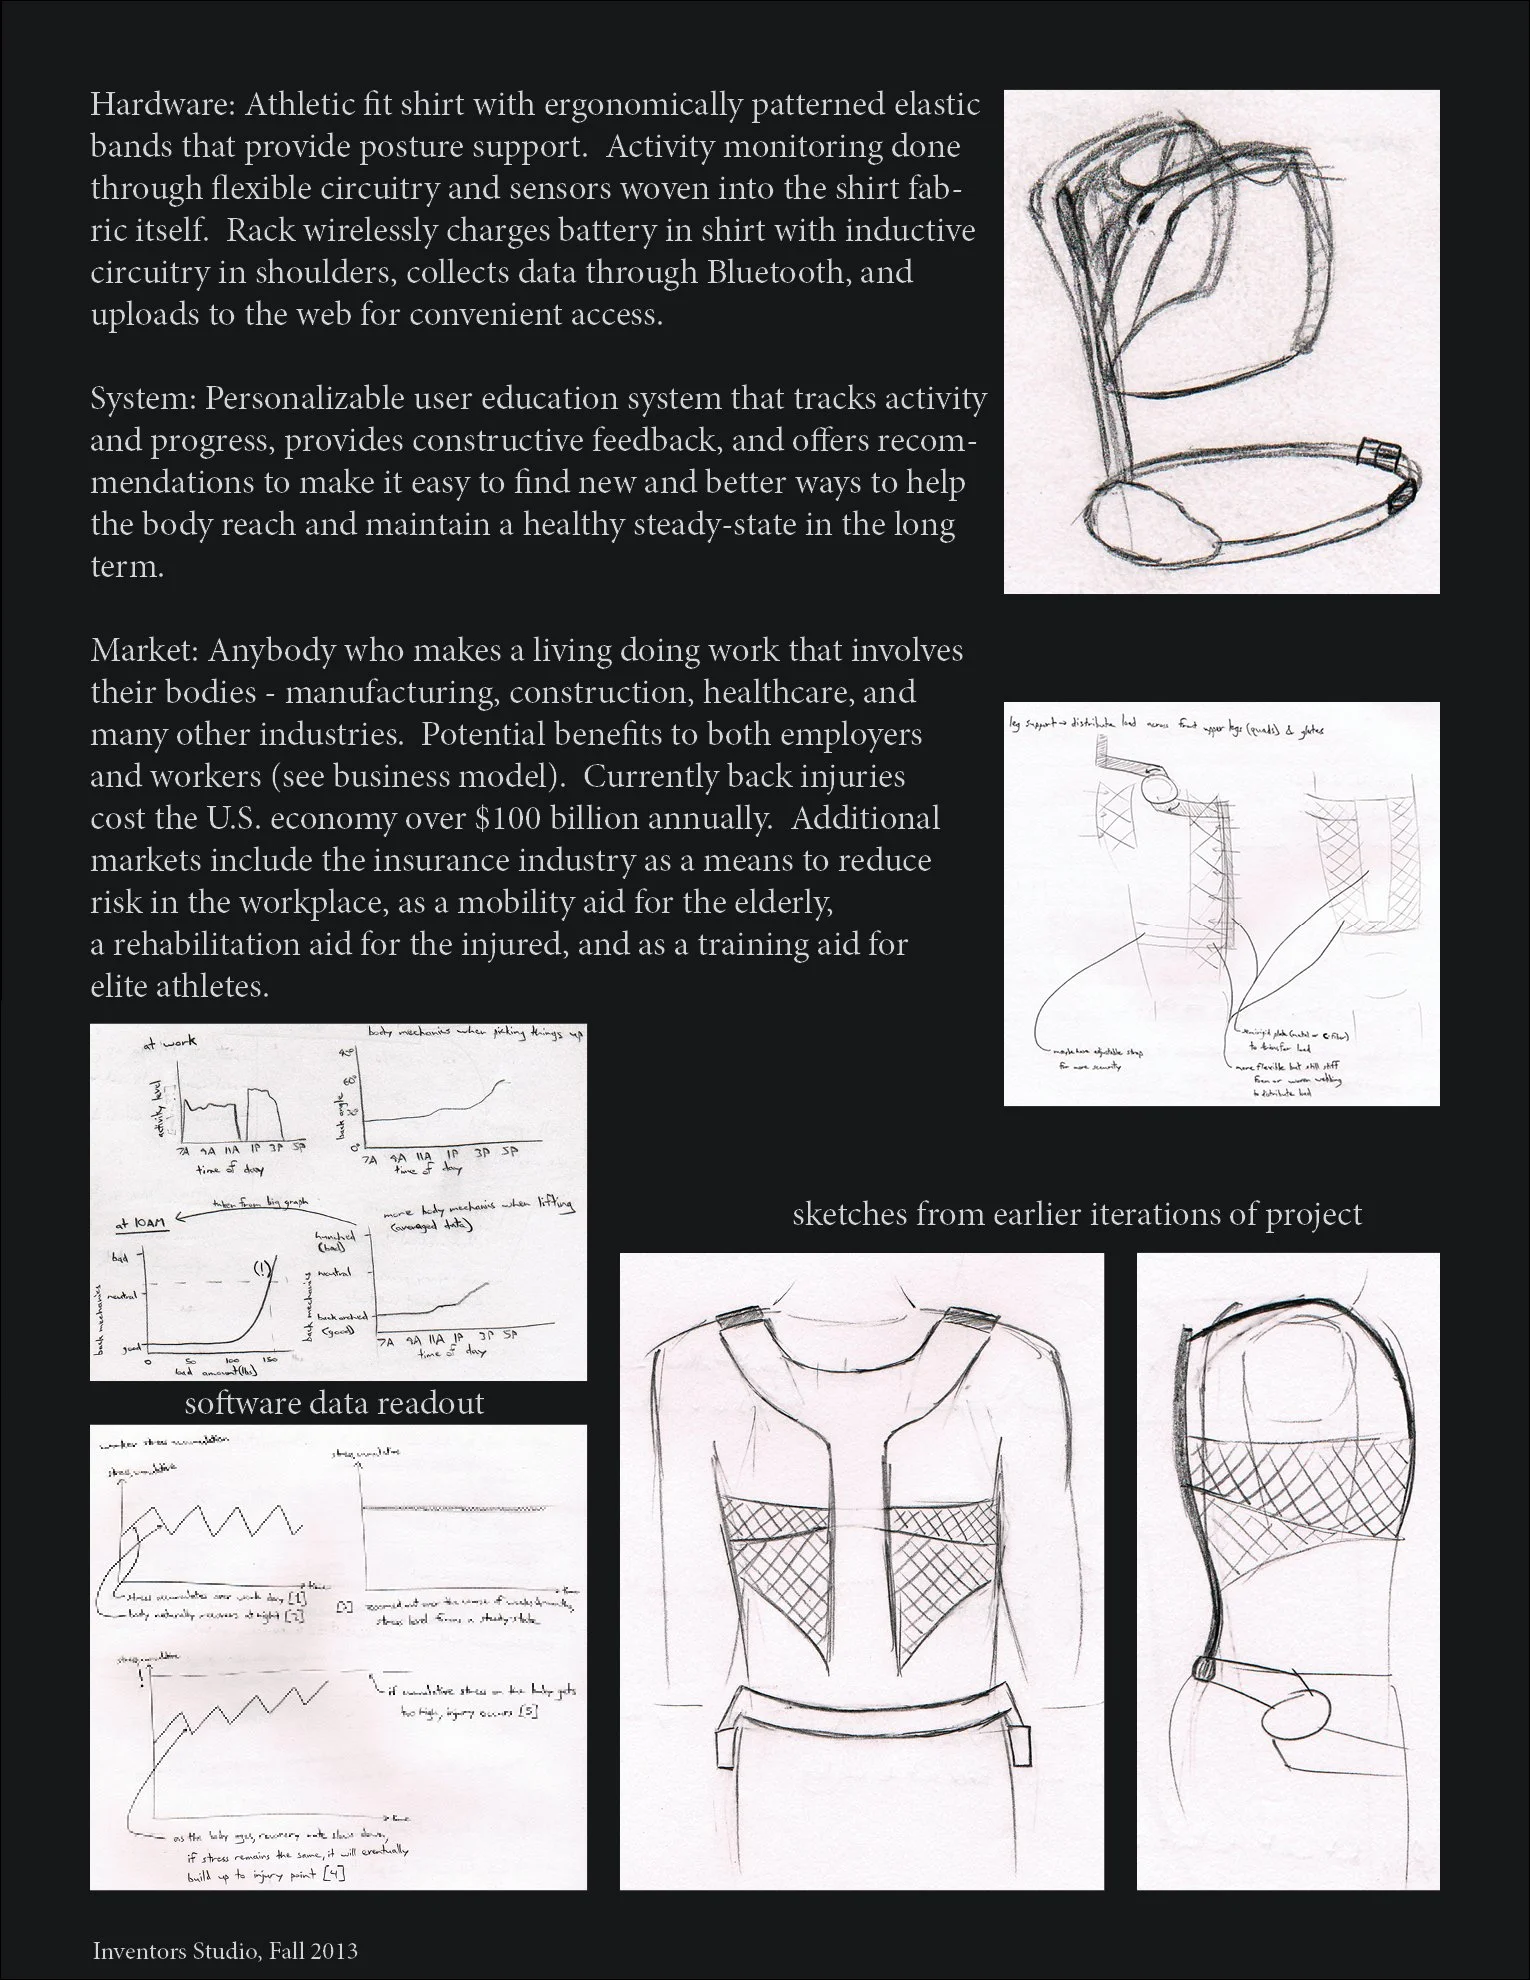 Hardware: Athletic fit shirt with ergonomically patterned elastic
bands that provide posture support.  Activity monitoring done
through flexible circuitry and sensors woven into the shirt fab-
ric itself.  Rack wirelessly charges battery in shirt with inductive
circuitry in shoulders, collects data through Bluetooth, and
uploads to the web for convenient access.
System: Personalizable user education system that tracks activity
and progress, provides constructive feedback, and offers recom-
mendations to make it easy to find new and better ways to help
the body reach and maintain a healthy steady-state in the long
term.
Market: Anybody who makes a living doing work that involves
their bodies - manufacturing, construction, healthcare, and
many other industries.  Potential benefits to both employers
and workers (see business model).  Currently back injuries
cost the U.S. economy over $100 billion annually.  Additional
markets include the insurance industry as a means to reduce
risk in the workplace, as a mobility aid for the elderly,
a rehabilitation aid for the injured, and as a training aid for
elite athletes.
leg support → distribute load across front upper legs (quads) & glutes
semirigid plate (metal or c-fiber)
to transfer load
maybe have adjustable strap
for more security
more flexible but still stiff
foam or woven webbing
to distribute load
at work
activity level
7A 9A 11A 1P 3P 5P
time of day
body mechanics when picking things up
back angle
0°
7A 9A 11A 1P 3P 5P
time of day
taken from big graph
at 10AM
bad
neutral
good
back mechanics
(!)
0 50 100 150
load amount (lbs)
more body mechanics when lifting
(averaged data)
hunched
(bad)
neutral
back arched
(good)
back mechanics
7A 9A 11A 1P 3P 5P
time of day
software data readout
sketches from earlier iterations of project
worker stress accumulation
stress, cumulative
time
stress accumulates over work day [1]
body naturally recovers at night [2]
stress, cumulative
time
[3] zoomed out over the course of weeks & months,
stress level forms a steady-state
stress, cumulative
!
if cumulative stress on the body gets
too high, injury occurs [5]
time
as the body ages, recovery rate slows down,
if stress remains the same, it will eventually
build up to injury point [4]
Inventors Studio, Fall 2013